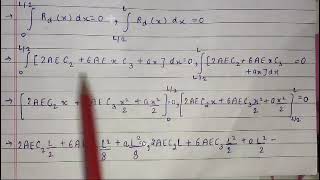 ∫₀^{L/2} R_d(x) dx = 0 , ∫_{L/2}^{L} R_d(x) dx = 0
→ ∫₀^{L/2} [2AEC₂ + 6AE x C₃ + ax] dx = 0, ∫_{L/2}^{L} [2AEC₂ + 6AEXC₃ + ax] dx = 0
→ [2AEC₂x + 6AEC₃ x²/2 + ax²/2]₀^{L/2} = 0, [2AEC₂x + 6AEC₃ x²/2 + ax²/2]_{L/2}^{L} = 0
→ 2AEC₂ L/2 + 6AEC₃ L²/8 + a L²/8 = 0, 2AEC₂L + 6AEC₃ L²/2 + a L²/2 −